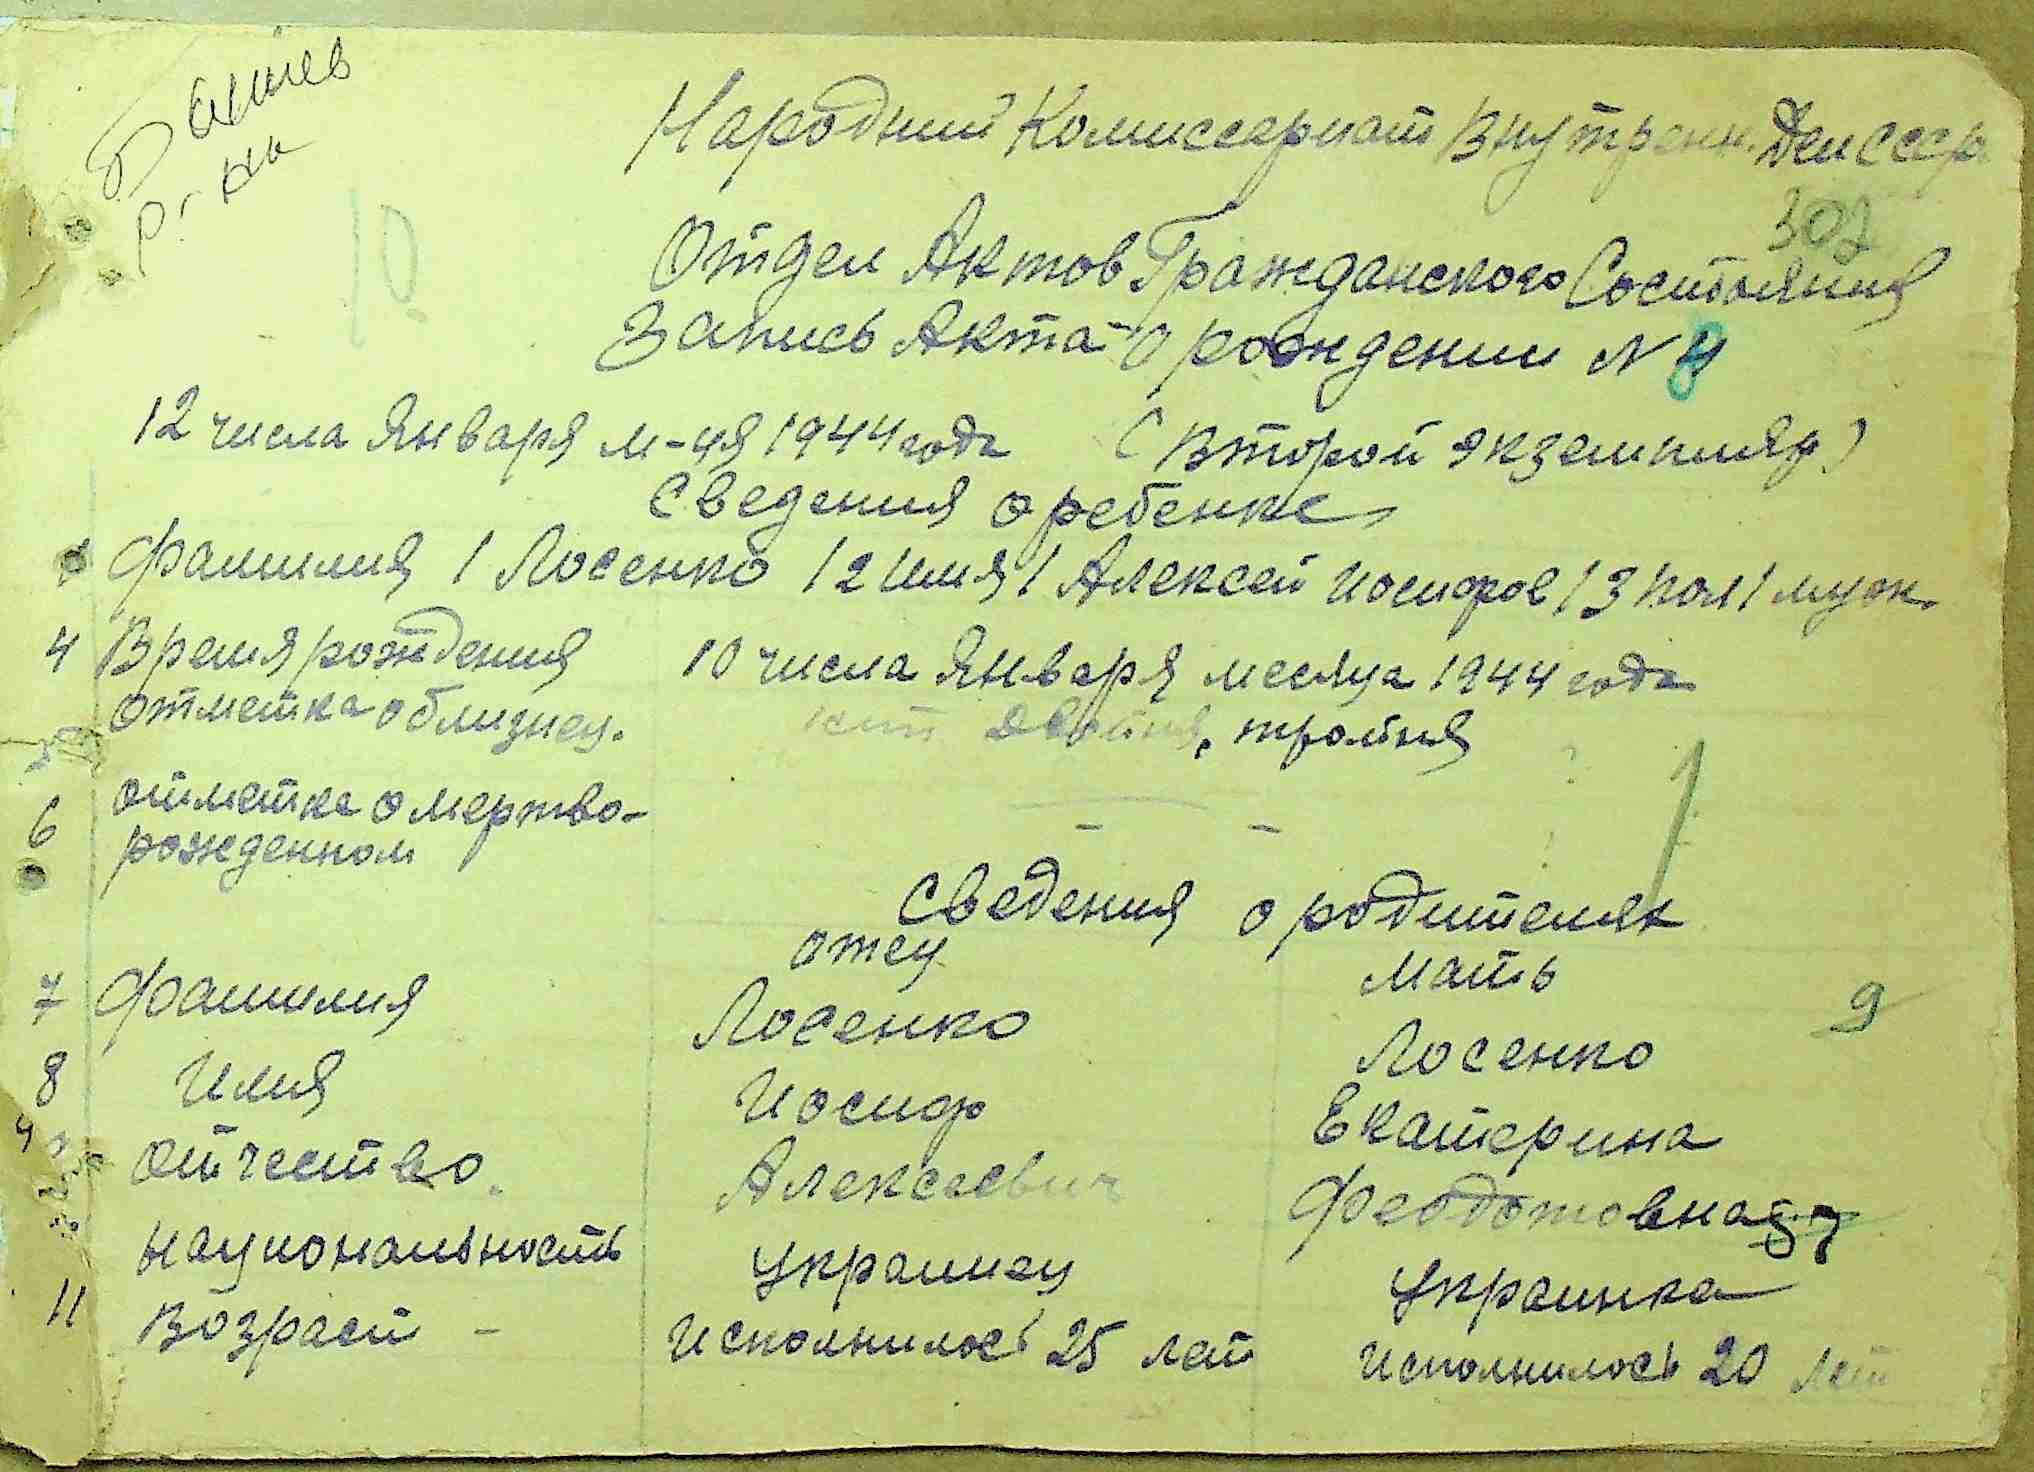 Башев
р-нь
Народний Комиссариат Внутренн. Дел СССР
307
10
Отдел Актов Гражданского Состояния
Запись Акта о рождении N 8
12 числа Января м-ця 1944 года (Второй экземпляр)
Сведения о ребенке
1 Фамилия / Лосенко / 2 Имя / Алексей Иосифов / 3 Пол / муж.
4 Время рождения 10 числа Января месяца 1944 года
5 отметка о близнец. двойня, тройня
6 отметка о мертво-
рожденном — —
Сведения о родителях
отец Мать
7 Фамилия Лосенко Лосенко
9
8 Имя Иосиф Екатерина
9 отчество. Алексеевич Феодотовна
57
национальность Украинец Украинка
11 Возраст - Исполнилось 25 лет Исполнилось 20 лет